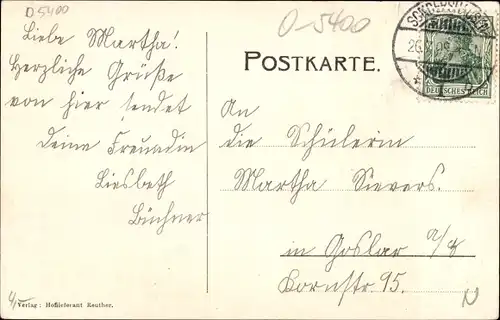 D 5400
O-5400
Liebe Martha!
Herzliche Grüße
von hier sendet
Deine Freundin
Liesbeth
Büchner
POSTKARTE.
SONDERSHAUSEN
DEUTSCHES REICH
An
die Schülerin
Martha Sievers.
in Goslar a/H
Kornstr. 95.
Verlag: Hoflieferant Reuther.
N